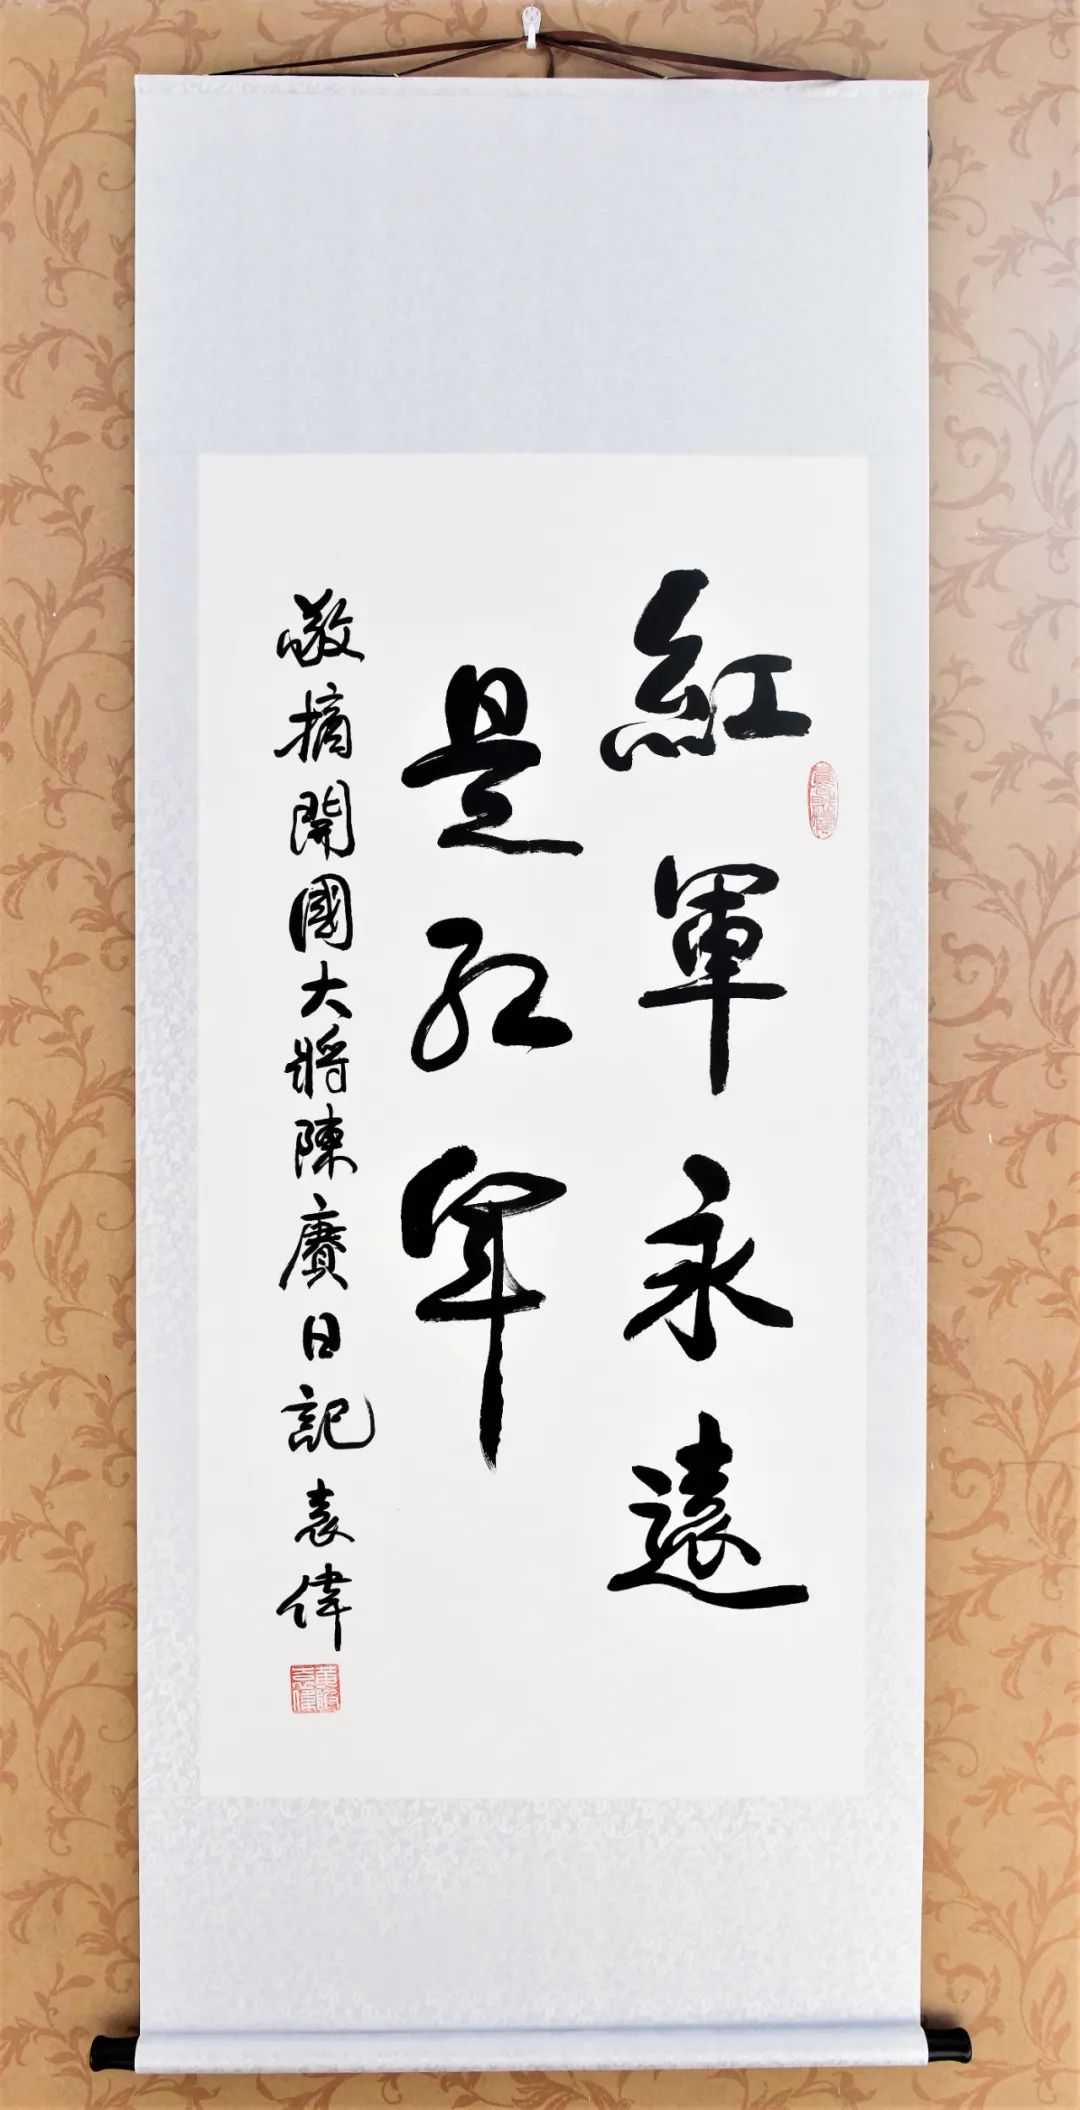 紅軍永遠
是红军
敬摘開國大將陳賡日記 袁偉